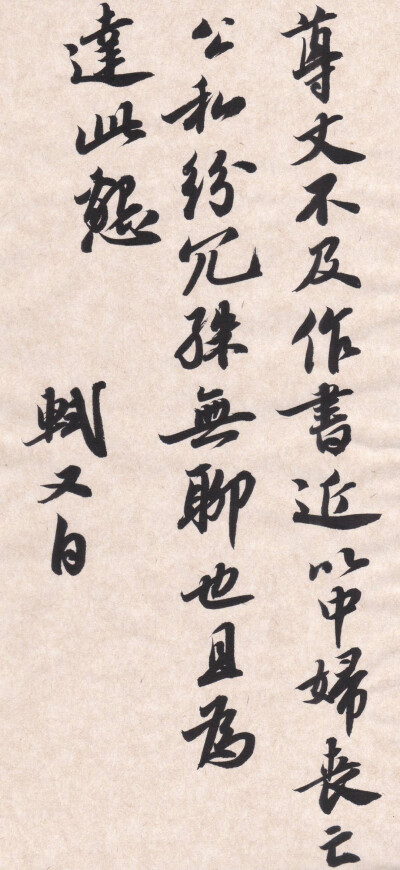 尊丈不及作書近以中婦喪亡
公私紛冗殊無聊也且為
達此懇
軾又白